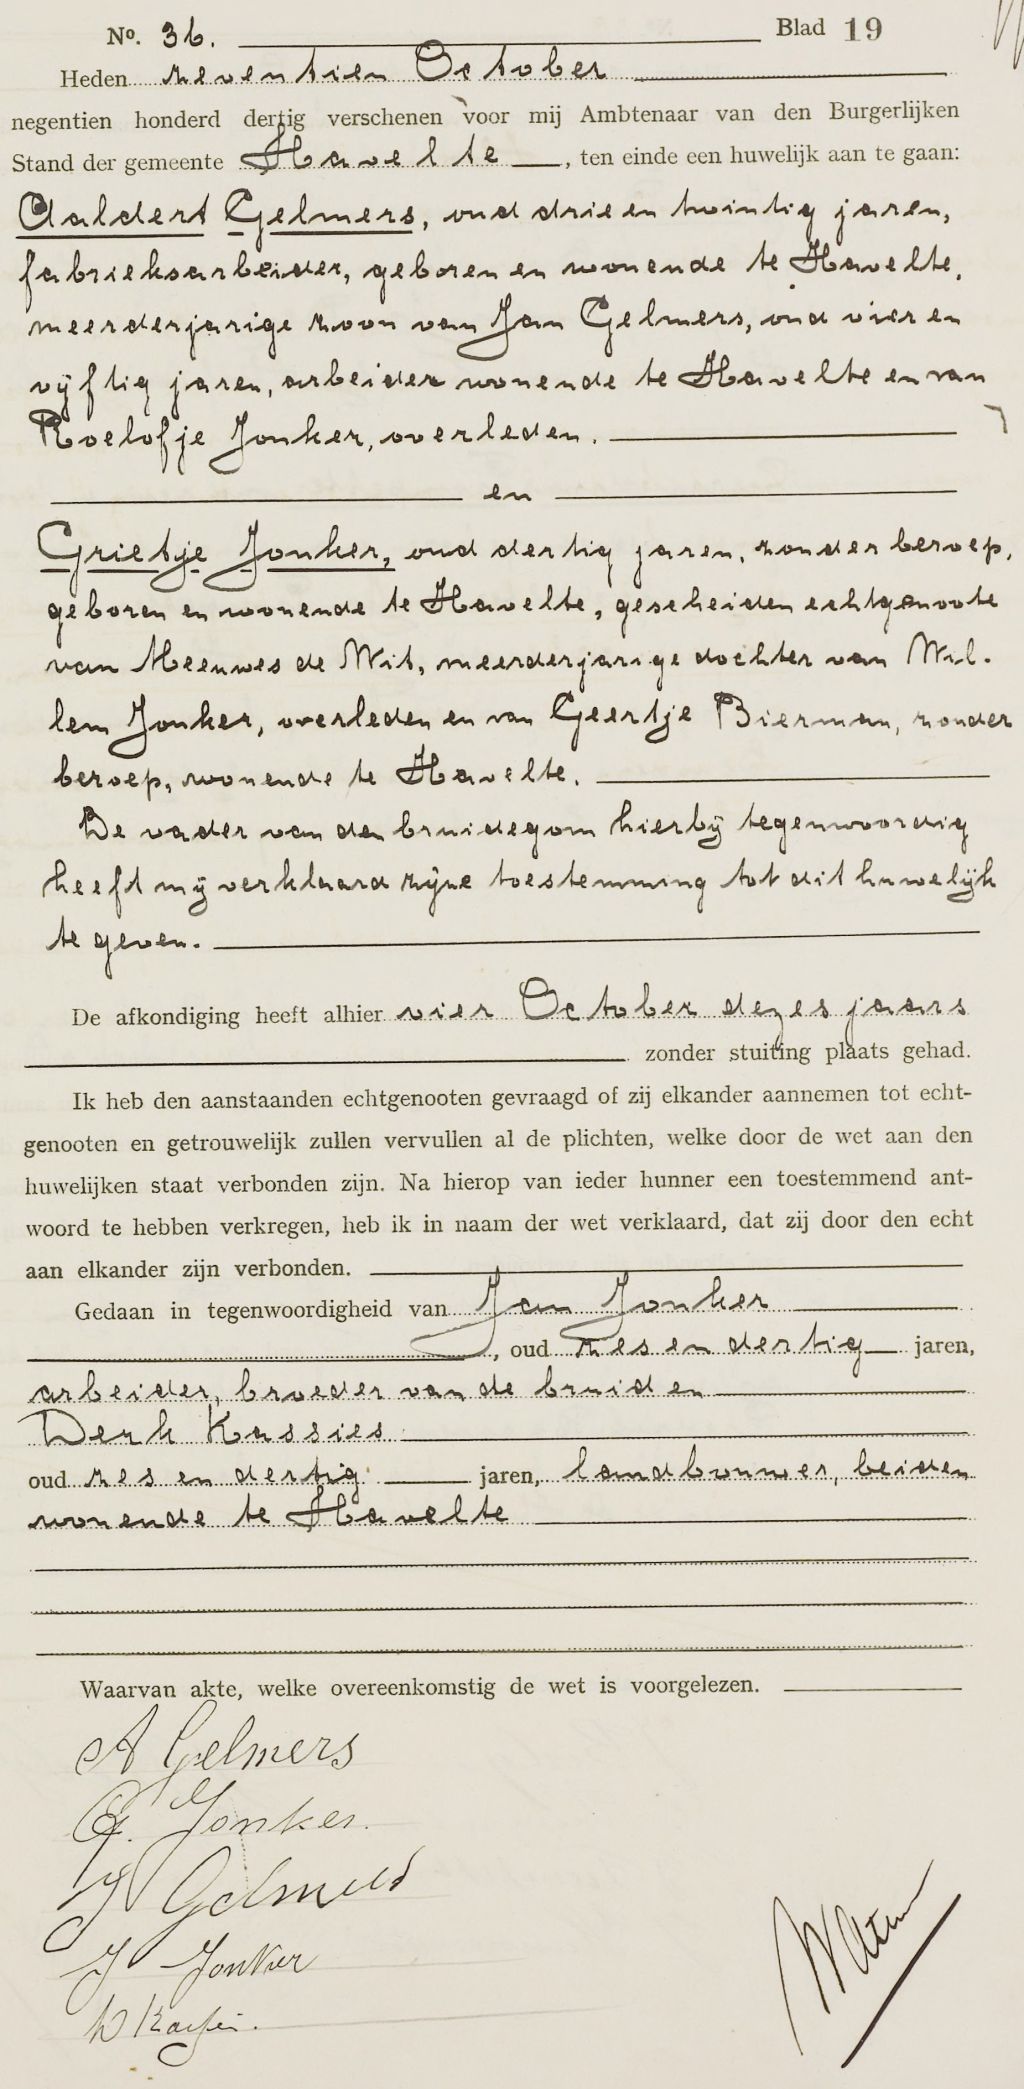 No. 36. Blad 19
Heden zeventien October
negentien honderd dertig verschenen voor mij Ambtenaar van den Burgerlijken
Stand der gemeente Havelte, ten einde een huwelijk aan te gaan:
Aaldert Gelmers, oud drie en twintig jaren,
fabrieksarbeider, geboren en wonende te Havelte,
meerderjarige zoon van Jan Gelmers, oud vier en
vijftig jaren, arbeider wonende te Havelte en van
Roelofje Jonker, overleden.
en
Grietje Jonker, oud dertig jaren, zonder beroep,
geboren en wonende te Havelte, gescheiden echtgenoote
van Meeuwes de Wit, meerderjarige dochter van Wil-
lem Jonker, overleden en van Geertje Bierman, zonder
beroep, wonende te Havelte.
De vader van den bruidegom hierbij tegenwoordig
heeft mij verklaard zijne toestemming tot dit huwelijk
te geven.
De afkondiging heeft alhier vier October dezes jaars
zonder stuiting plaats gehad.
Ik heb den aanstaanden echtgenooten gevraagd of zij elkander aannemen tot echt-
genooten en getrouwelijk zullen vervullen al de plichten, welke door de wet aan den
huwelijken staat verbonden zijn. Na hierop van ieder hunner een toestemmend ant-
woord te hebben verkregen, heb ik in naam der wet verklaard, dat zij door den echt
aan elkander zijn verbonden.
Gedaan in tegenwoordigheid van Jan Jonker
, oud zes en dertig jaren,
arbeider, broeder van de bruid en
Derk Kassies
oud zes en dertig jaren, landbouwer, beiden
wonende te Havelte
Waarvan akte, welke overeenkomstig de wet is voorgelezen.
A Gelmers
G. Jonker.
J Gelmers
J Jonker
D Kassies.